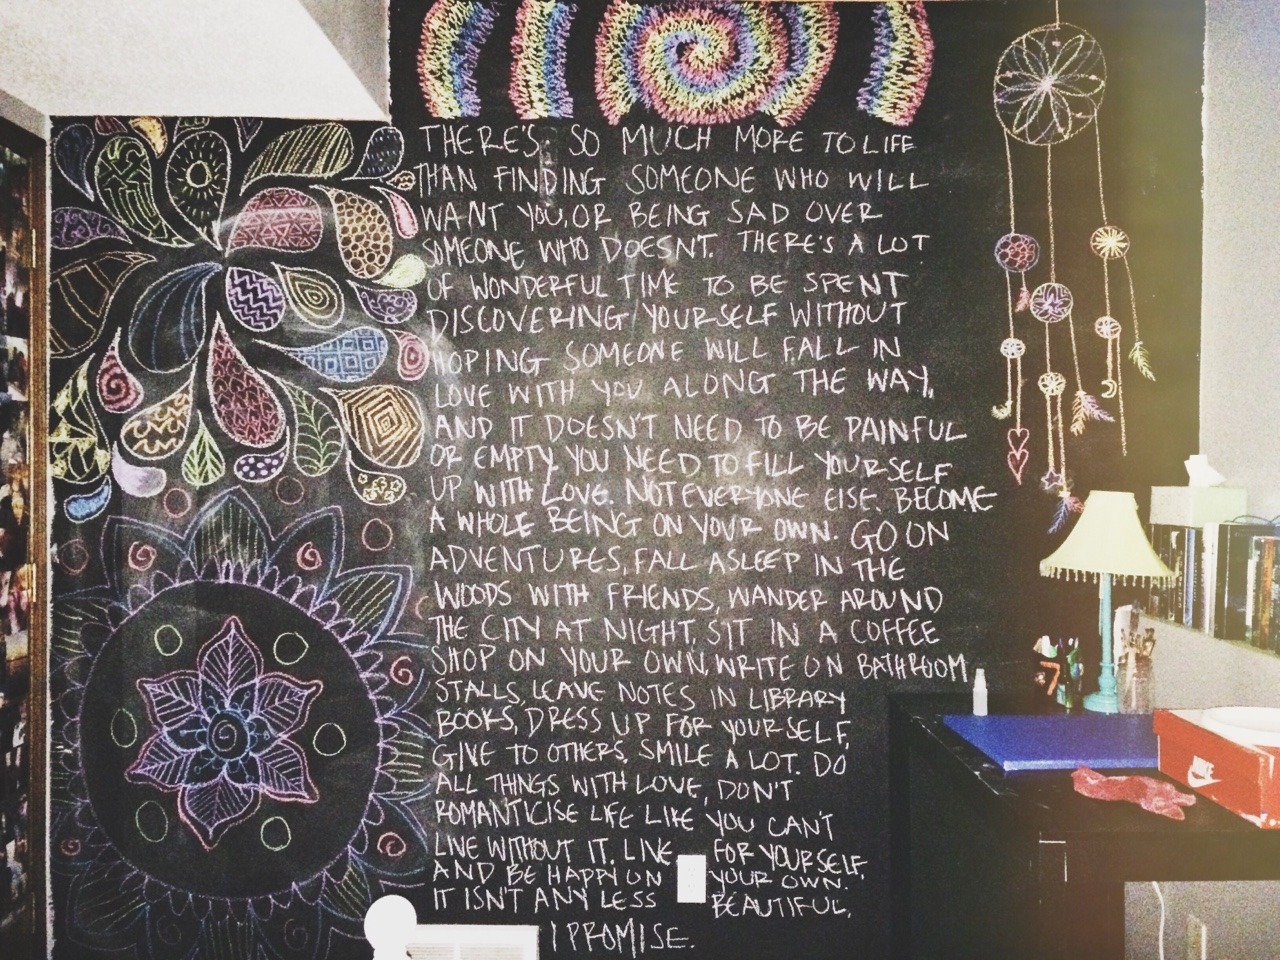 THERE'S SO MUCH MORE TO LIFE
THAN FINDING SOMEONE WHO WILL
WANT YOU, OR BEING SAD OVER
SOMEONE WHO DOESN'T. THERE'S A LOT
OF WONDERFUL TIME TO BE SPENT
DISCOVERING YOURSELF WITHOUT
HOPING SOMEONE WILL FALL IN
LOVE WITH YOU ALONG THE WAY,
AND IT DOESN'T NEED TO BE PAINFUL
OR EMPTY. YOU NEED TO FILL YOURSELF
UP WITH LOVE. NOT EVERYONE ELSE. BECOME
A WHOLE BEING ON YOUR OWN. GO ON
ADVENTURES, FALL ASLEEP IN THE
WOODS WITH FRIENDS, WANDER AROUND
THE CITY AT NIGHT, SIT IN A COFFEE
SHOP ON YOUR OWN, WRITE ON BATHROOM
STALLS, LEAVE NOTES IN LIBRARY
BOOKS, DRESS UP FOR YOURSELF,
GIVE TO OTHERS, SMILE A LOT. DO
ALL THINGS WITH LOVE, DON'T
ROMANTICISE LIFE LIKE YOU CAN'T
LIVE WITHOUT IT. LIVE FOR YOURSELF,
AND BE HAPPY ON YOUR OWN.
IT ISN'T ANY LESS BEAUTIFUL,
I PROMISE.